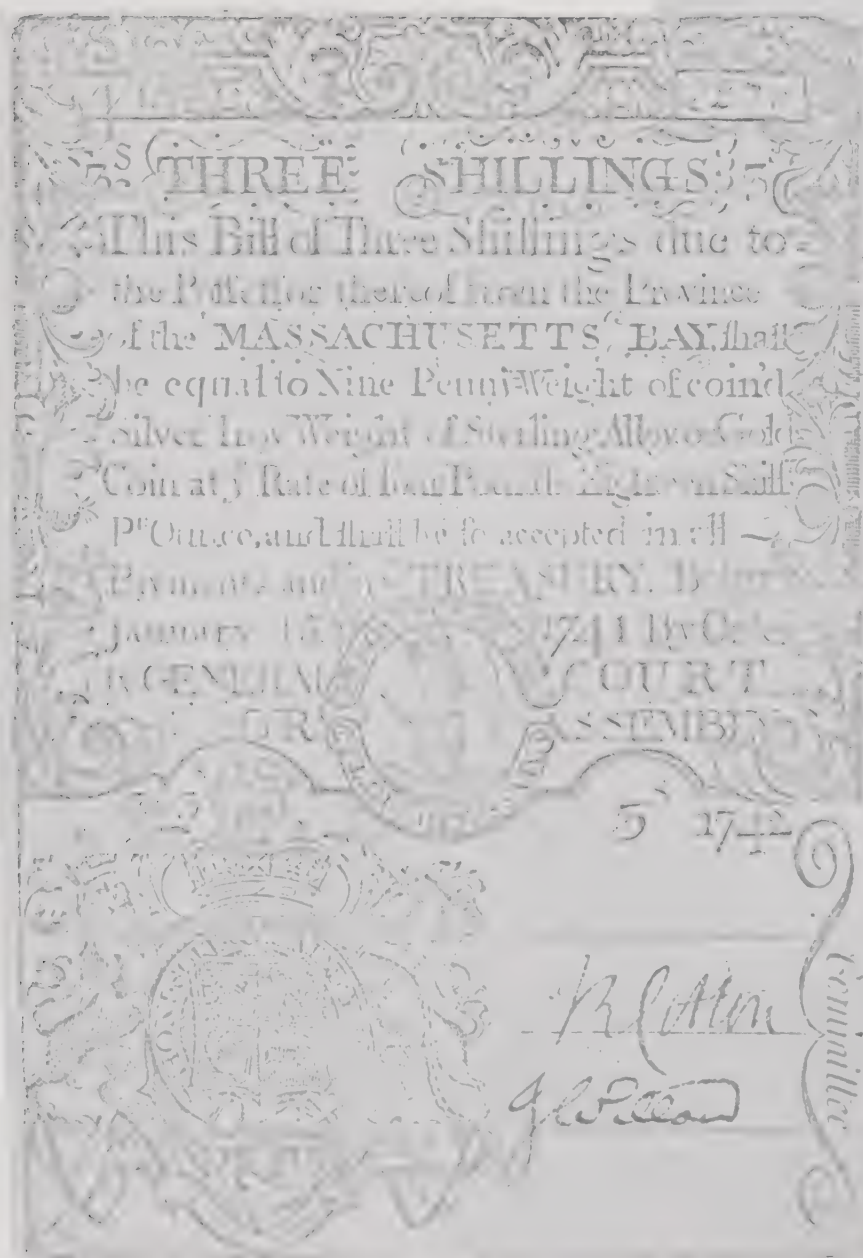 3S THREE SHILLINGS 3S
This Bill of Three Shillings due to
the Poſſeſſor thereof from the Province
of the MASSACHUSETTS BAY ſhall
be equal to Nine Penny Weight of coin'd
Silver Troy Weight of Sterling Alloy or Gold
Coin at yͤ Rate of four Pounds Eighteen Shill
Pr Ounce, and ſhall be ſo accepted in all
Payments and in TREASURY.
January 15 1741 By
GENERAL COURT
OR ASSEMBLY
3S 1742
Committee
R Cotton